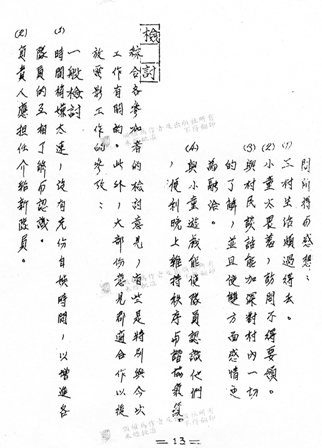 問訪得而感想：
(1) 工村生活頗過得去。
(2) 小童太畏羞，訪問不得要領。
(3) 與村民談話能加深對村內一切
的了解，並且使雙方面感情更
為融洽。
(4) 與小童遊戲能使隊員認識他們
，便利晚上維持秩序與諧協氣氛。
檢討
綜合各參加者的檢討意見，有些是特別與今次
工作有關的。此外，大部份意見則適合作以後
放電影工作的參攷：
一般檢討
(1) 時間稍嫌太速，沒有充份自娛時間，以增進各
隊員的互相了解而認識。
(2) 負責人應担任介紹新隊員。
— 13 —